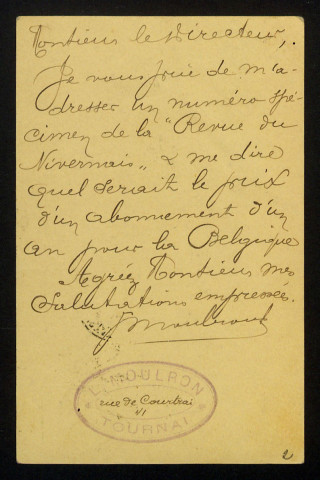 Monsieur le Directeur,
Je vous prie de m'a-
dresser un numéro spé-
cimen de la "Revue du
Nivernais" & me dire
quel serait le prix
d'un abonnement d'un
an pour la Belgique
Agréez Monsieur mes
Salutations empressées.
L. MOULRON
rue de Courtrai
TOURNAI
2